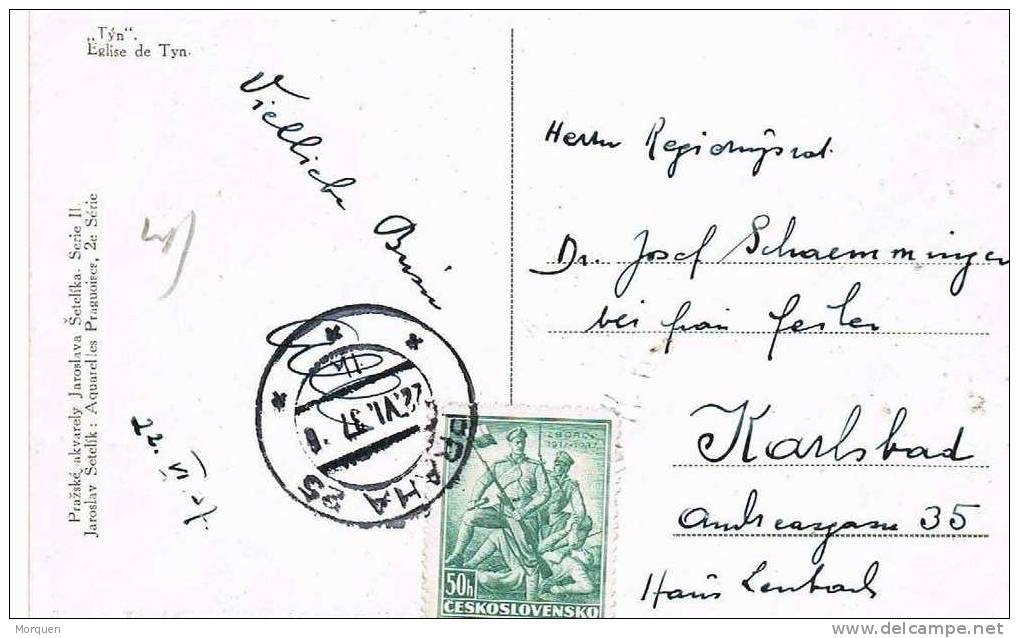 „Týn".
Eglise de Tyn.
Pražské akvarely Jaroslava Šetelíka. Serie II
Jaroslav Šetelík: Aquarelles Praguoises, 2e Série
22. VI.
PRAHA 25
22.VI.37
ZBOROV
1917-1937
50h
ČESKOSLOVENSKO
Herrn
Dr. Josef Schaemminger
bei
Karlsbad
Andreasgasse 35
Haus Lenbach
Morquen
delcampe.net